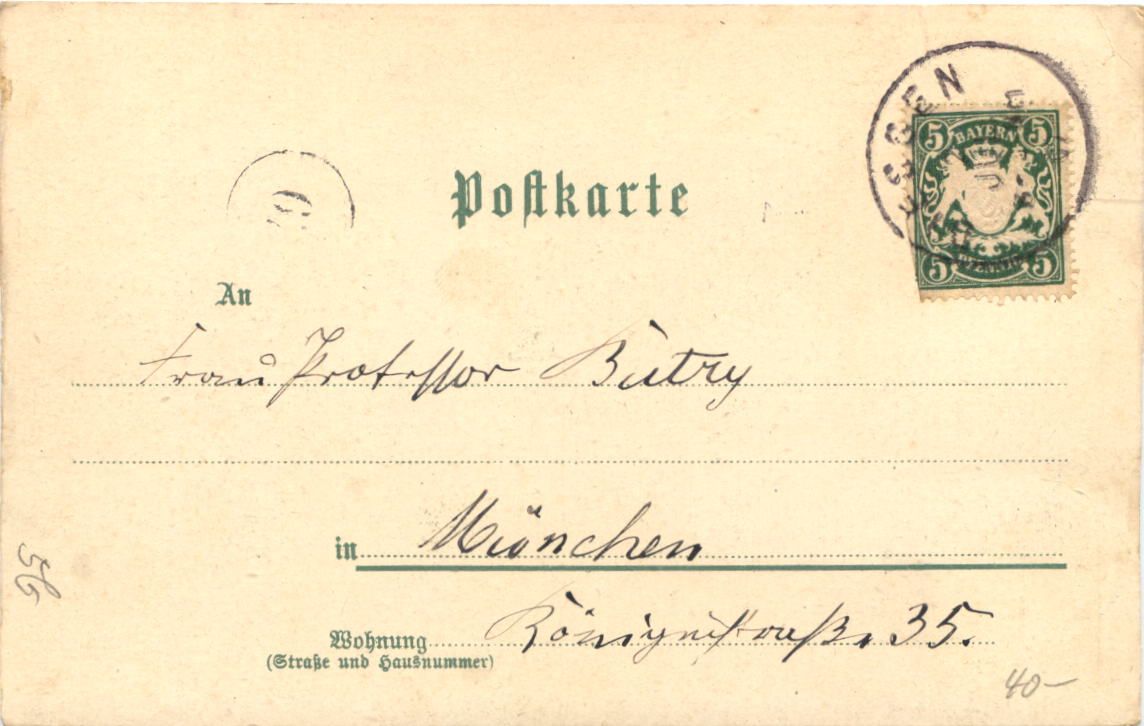 Postkarte
5 BAYERN 5
5 PFENNIG 5
An
Frau Professor Butry
in München
Wohnung Königinstraße 35.
(Straße und Hausnummer)
56
40-